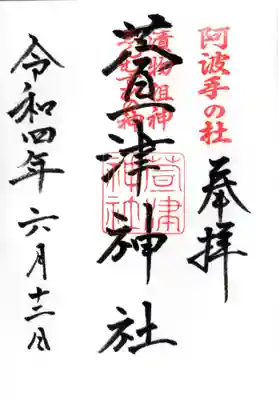 阿波手の杜
奉拝
漬物祖神
萱津神社
萱津
神社
令和四年六月十二日